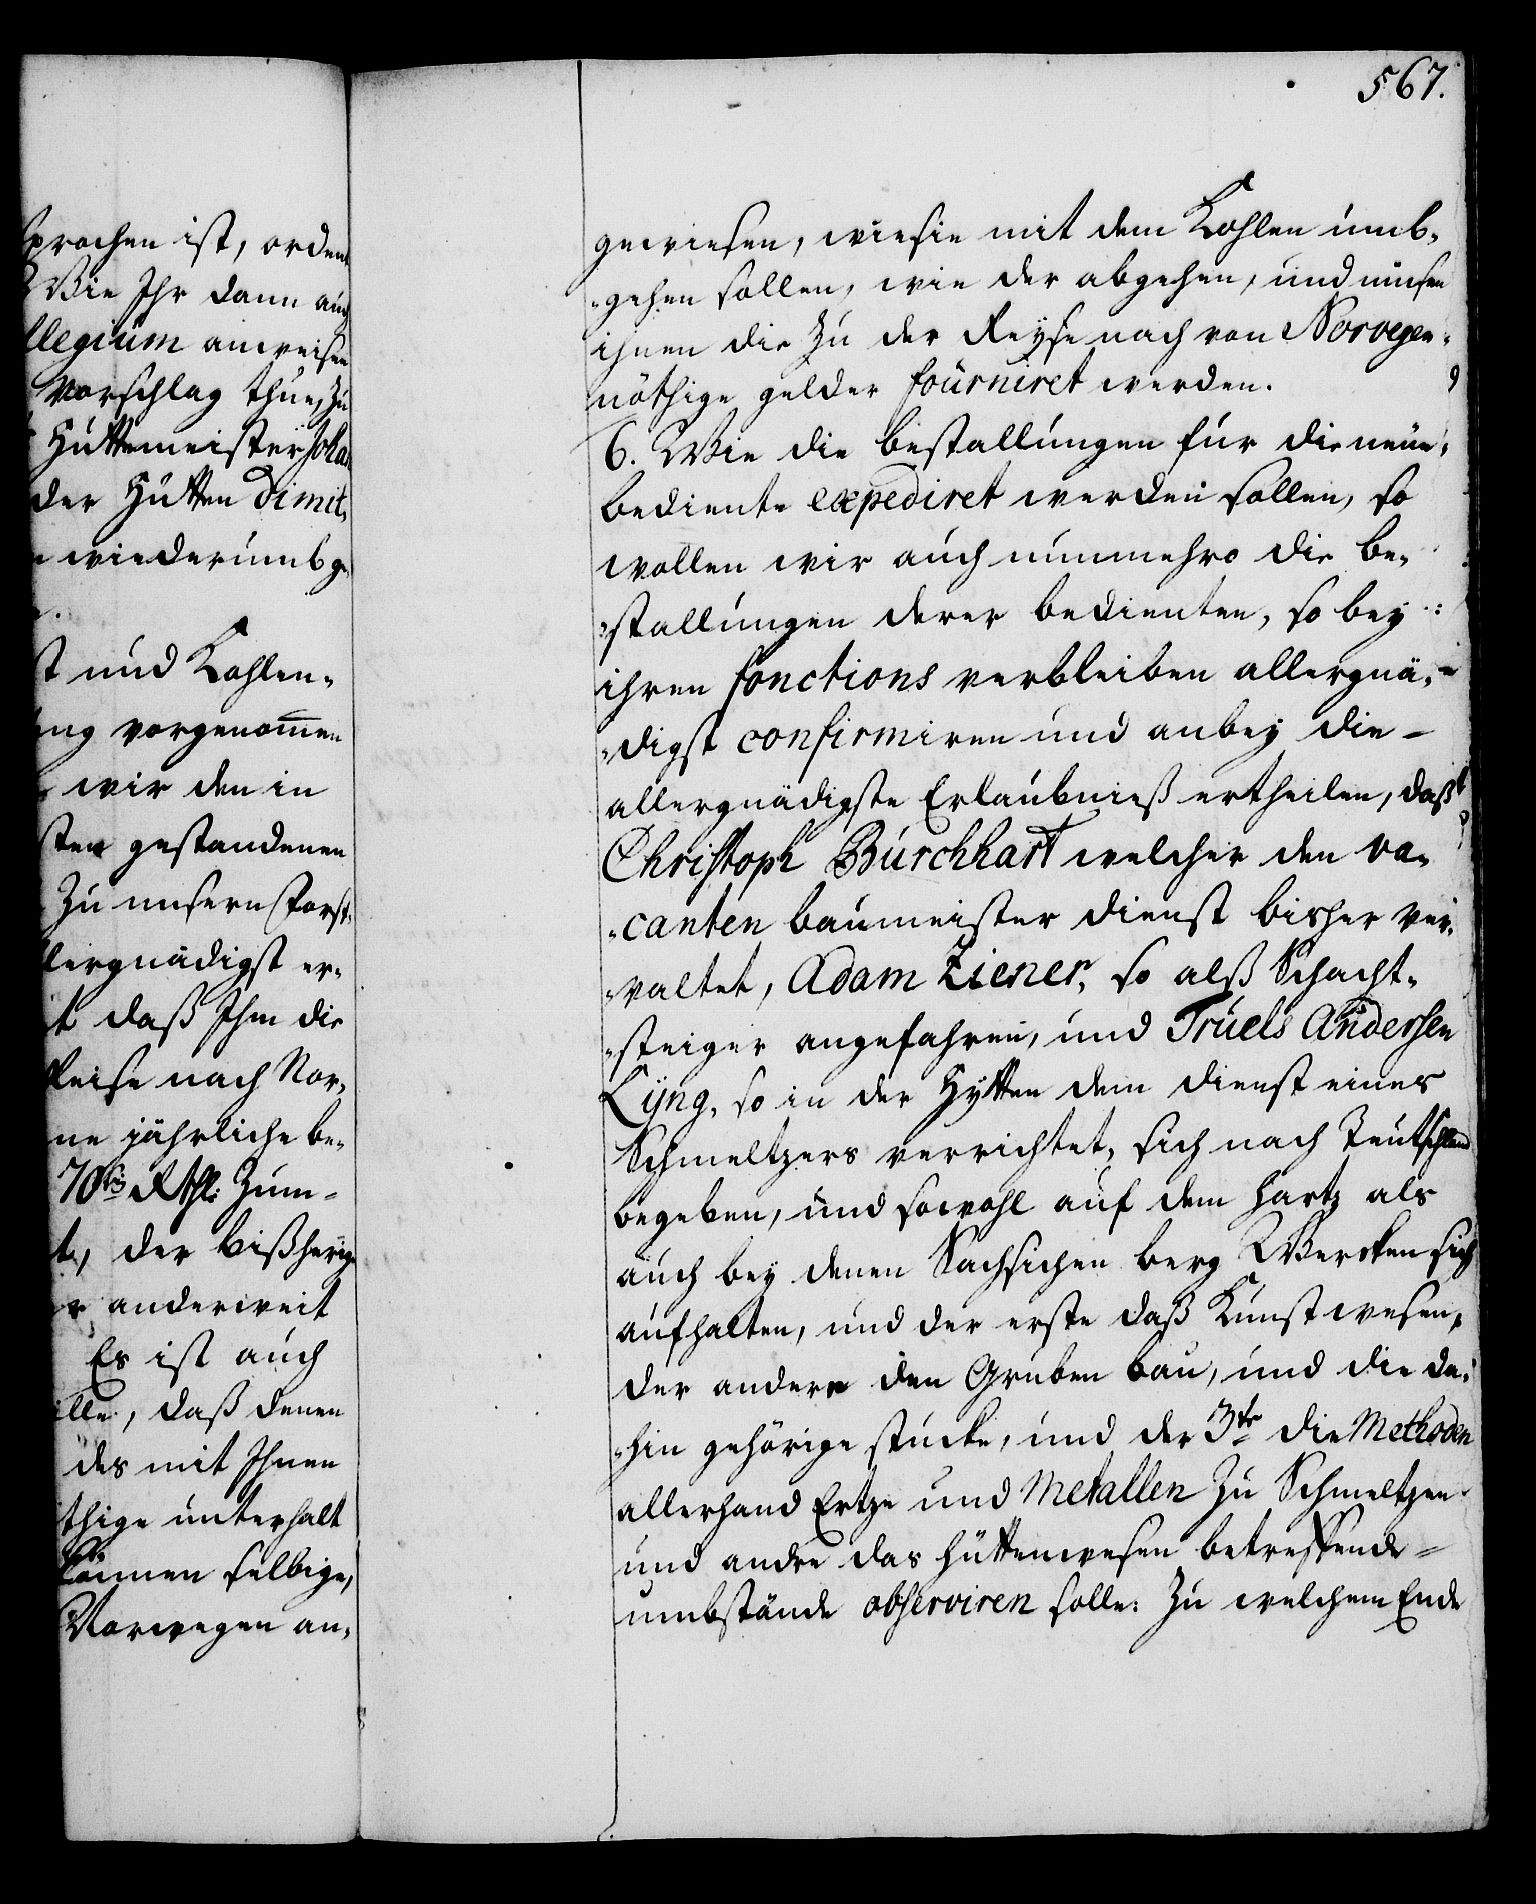 567.
sprochen ist, ordent
Wie Ihr dann auch
llegium anweisen
Vorschlag thue, Zu
Hüttemeister Joha
der Hütten Dimit,
wiederumb ge
st und Kohlen,
ung vorgenom̅en
wir den in
sten gestandenen
Zu unsern Forst,
lergnädigst er,
t daß Ihm die
Reise nach Nor,
ne jährliche be,
70 Rthl: Zum
t, der bißherige
anderweit
Es ist auch
ille, daß denen
des mit Ihnen
thige unterhalt
können selbige,
Norwegen an,
gewiesen, wie sie mit dem Kohlen umb,
„gehen sollen, wie der abgehen, und müsen
ihnen die Zu der Reyse nach von Norvegen
nöthige gelder fourniret werden.
6. Wie die bestallungen für die neue
bediente expediret werden sollen, so
wollen wir auch nunmehro die be,
„stallungen derer bedienten, so bey
ihren fonctions verbleiben allergnä,
„digst confirmiren und anbey die
allergnädigste Erlaubniß ertheilen, daß
Christoph Burchhart welcher den va,
„canten baumeister dienst bisher ver,
„waltet, Adam Ziener, so alß Schacht,
„steiger angefahren, und Truels Andersen
Lyng, so in der Hytten dem dienst eines
Schmeltzers verrichtet, sich nach Teutschland
begeben, und sowohl auf dem Hartz als
auch bey denen Sachsichen berg Wercken sich
aufhalten, und der erste daß Kunst wesen,
der andere den Gruben bau, und die da,
„hin gehörige stücke, und der 3te die Methoden
allerhand Ertze und Metallen Zu Schmeltzen
und andre das hüttenwesen betreffende
umbstände observiren solle: Zu welchem Ende